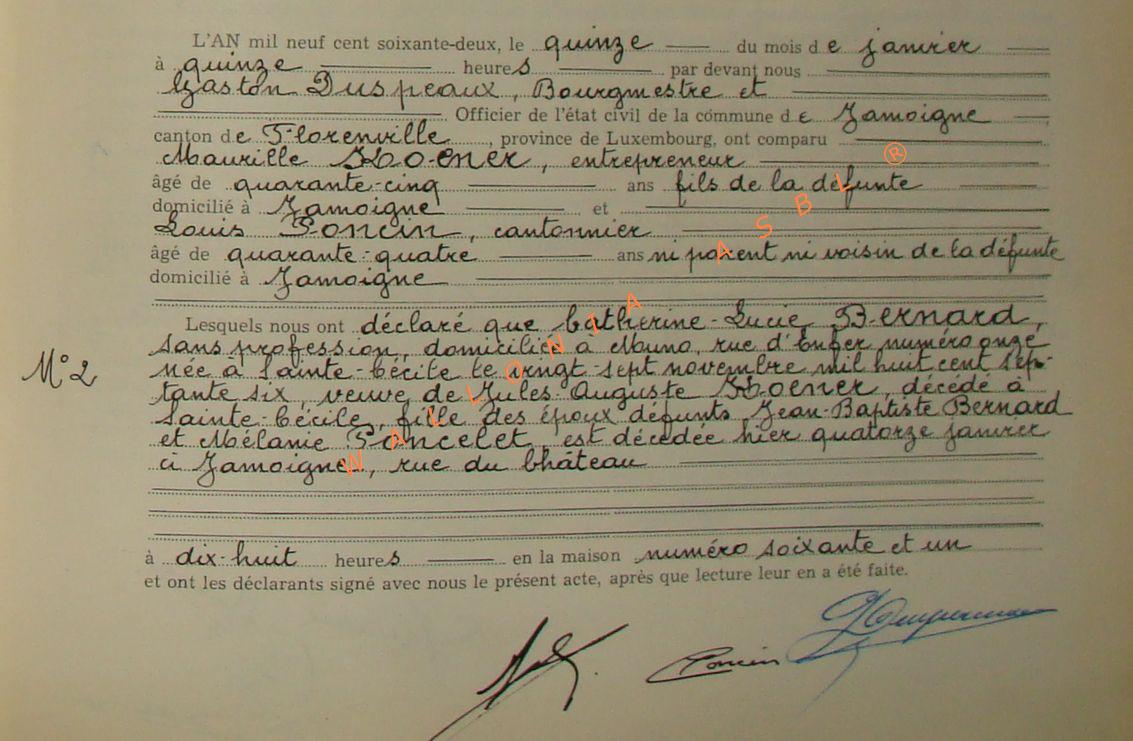 L'AN mil neuf cent soixante-deux, le quinze du mois de janvier
à quinze heures par devant nous
Gaston Duspeaux, Bourgmestre et
Officier de l'état civil de la commune de Jamoigne
canton de Florenville, province de Luxembourg, ont comparu
Maurille entrepreneur
âgé de quarante-cinq ans fils de la défunte
domicilié à Jamoigne et
Louis Poncin, cantonnier
âgé de quarante-quatre ans ni parent ni voisin de la défunte
domicilié à Jamoigne
Lesquels nous ont déclaré que Catherine-Lucie Bernard,
sans profession, domiciliée à Muno, rue d'Enfer numéro onze
née à Sainte-Cécile le vingt-sept novembre mil huit cent sep-
tante six, veuve de Jules-Auguste décédé à
Sainte-Cécile, fille des époux défunts Jean-Baptiste Bernard
et Mélanie Poncelet, est décédée hier quatorze janvier
à Jamoigne, rue du Château
N° 2
à dix-huit heures en la maison numéro soixante et un
et ont les déclarants signé avec nous le présent acte, après que lecture leur en a été faite.
Poncin
WALLONIA ASBL ®